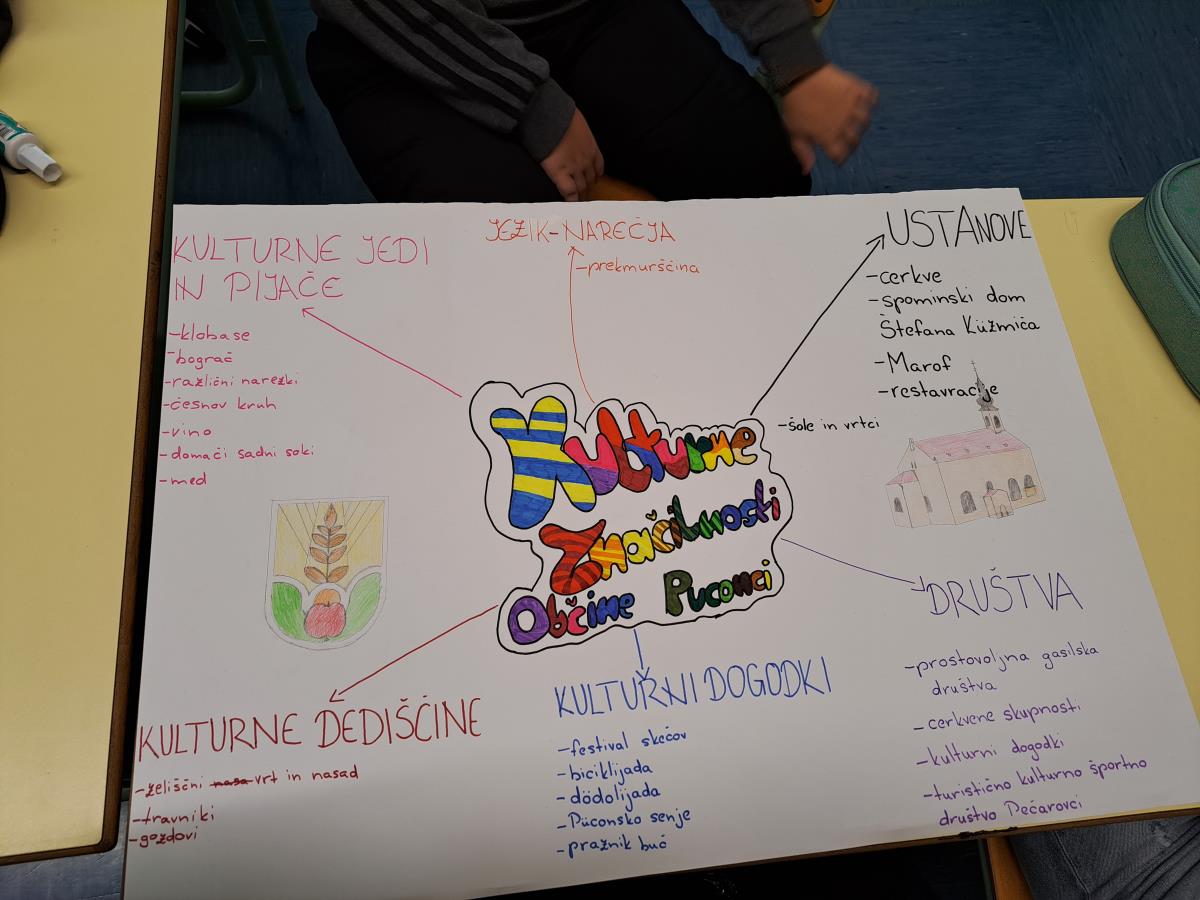 KULTURNE JEDI
IN PIJAČE
-klobase
-bograč
-različni narezki
-česnov kruh
-vino
-domači sadni soki
-med
JEZIK-NAREČJA
-prekmurščina
USTANOVE
-cerkve
-spominski dom
Štefana Küzmiča
-Marof
-restavracije
-šole in vrtci
Kulturne
Značilnosti
Občine Puconci
DRUŠTVA
-prostovoljna gasilska
društva
-cerkvene skupnosti
-kulturni dogodki
-turistično kulturno športno
društvo Pečarovci
KULTURNE DEDIŠČINE
-zeliščni nasa vrt in nasad
-travniki
-gozdovi
KULTURNI DOGODKI
-festival skečov
-biciklijada
-dödolijada
-Püconsko senje
-praznik buč